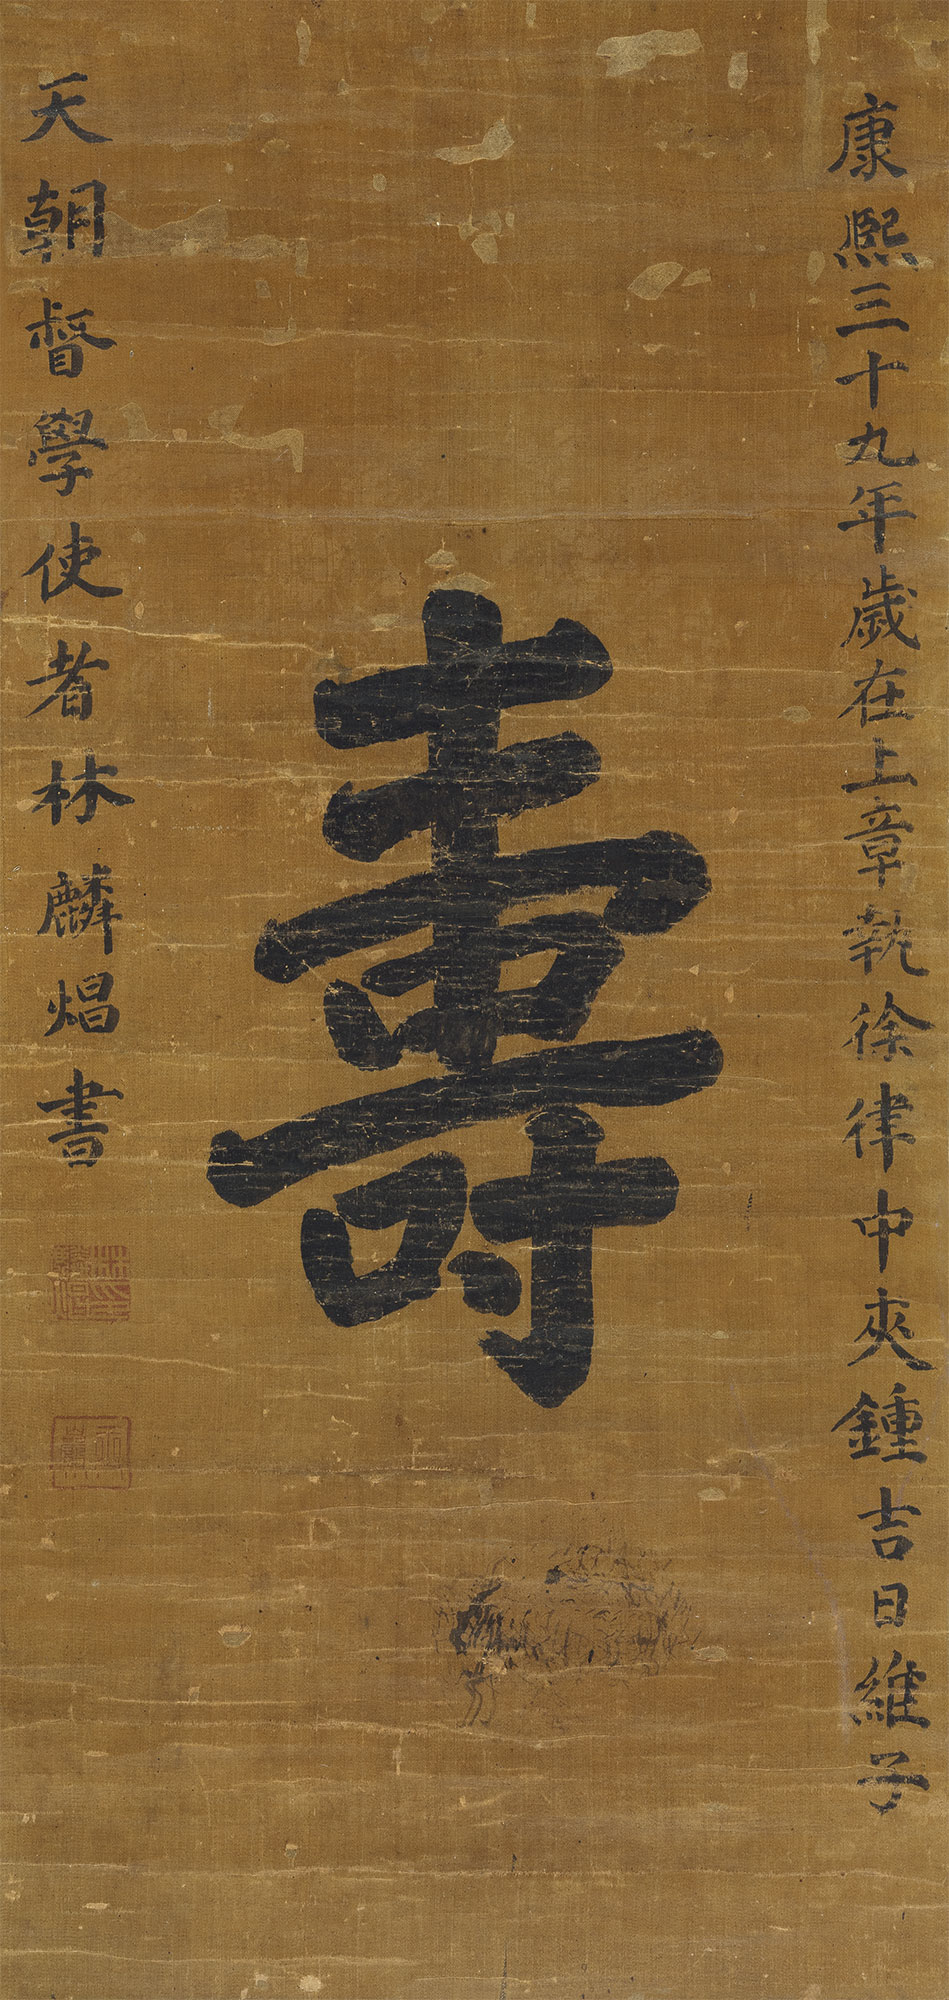 康熙三十九年歲在上章執徐律中夾鍾吉日維子
壽
天朝督學使者林麟焻書